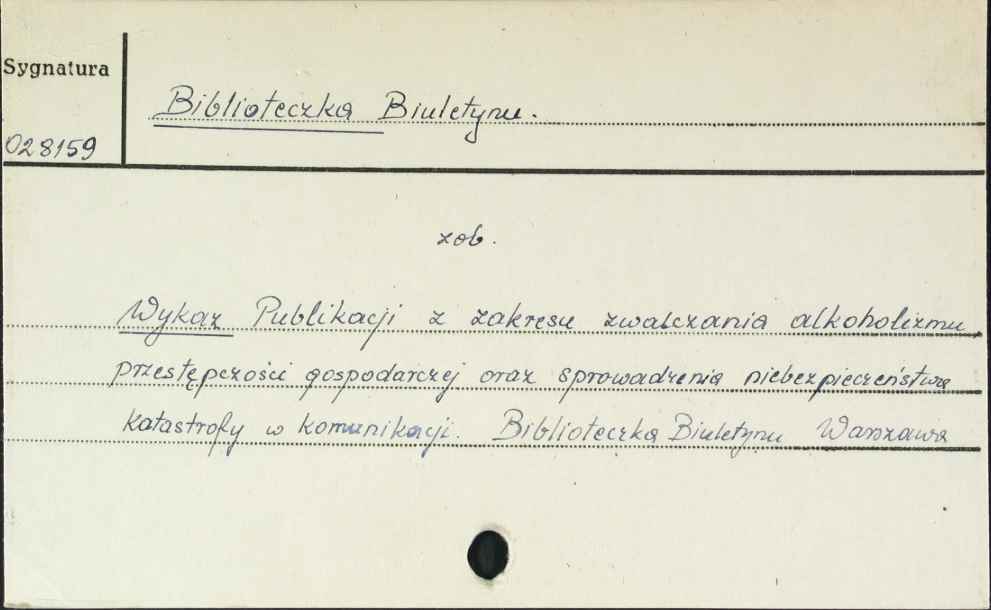 Sygnatura
Biblioteczka Biuletynu.
028159
zob.
Wykaz Publikacji z zakresu zwalczania alkoholizmu
przestępczości gospodarczej oraz sprowadzenia niebezpieczeństwa
katastrofy w komunikacji. Biblioteczka Biuletynu Warszawa